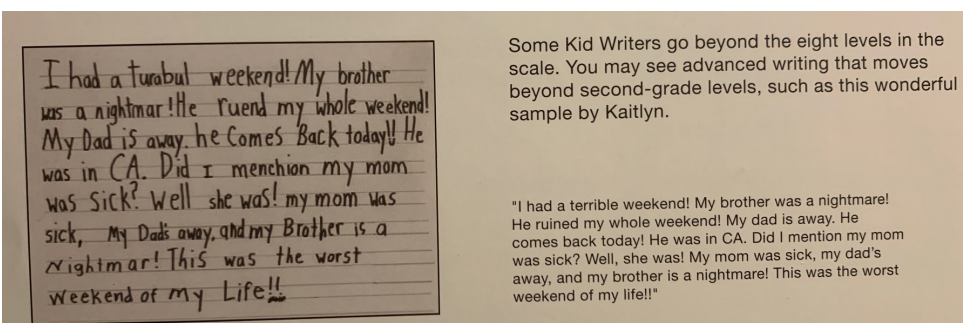 I had a turabul weekend! My brother
was a nightmar! He ruend my whole weekend!
My Dad is away. he Comes Back today!! He
was in CA. Did I menchion my mom
was Sick? Well she was! my mom was
sick, My Dads away, and my Brother is a
Nightmar! This was the worst
weekend of my Life!!
Some Kid Writers go beyond the eight levels in the
scale. You may see advanced writing that moves
beyond second-grade levels, such as this wonderful
sample by Kaitlyn.
"I had a terrible weekend! My brother was a nightmare!
He ruined my whole weekend! My dad is away. He
comes back today! He was in CA. Did I mention my mom
was sick? Well, she was! My mom was sick, my dad's
away, and my brother is a nightmare! This was the worst
weekend of my life!!"